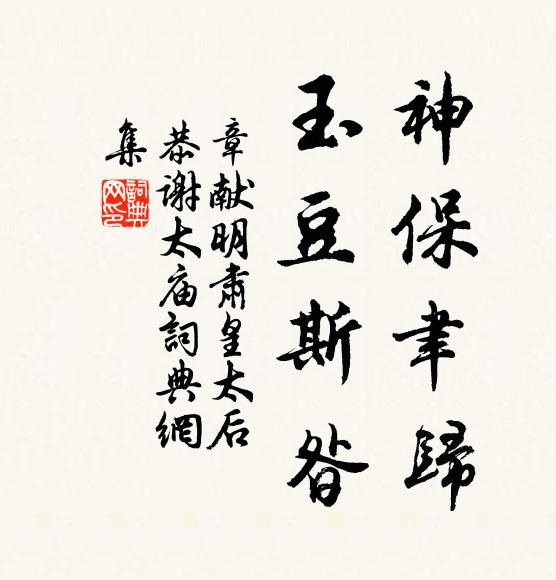 神保聿歸
玉豆斯昝
章献明肅皇太后
恭谢太庙詞典網
集
詞典
网印